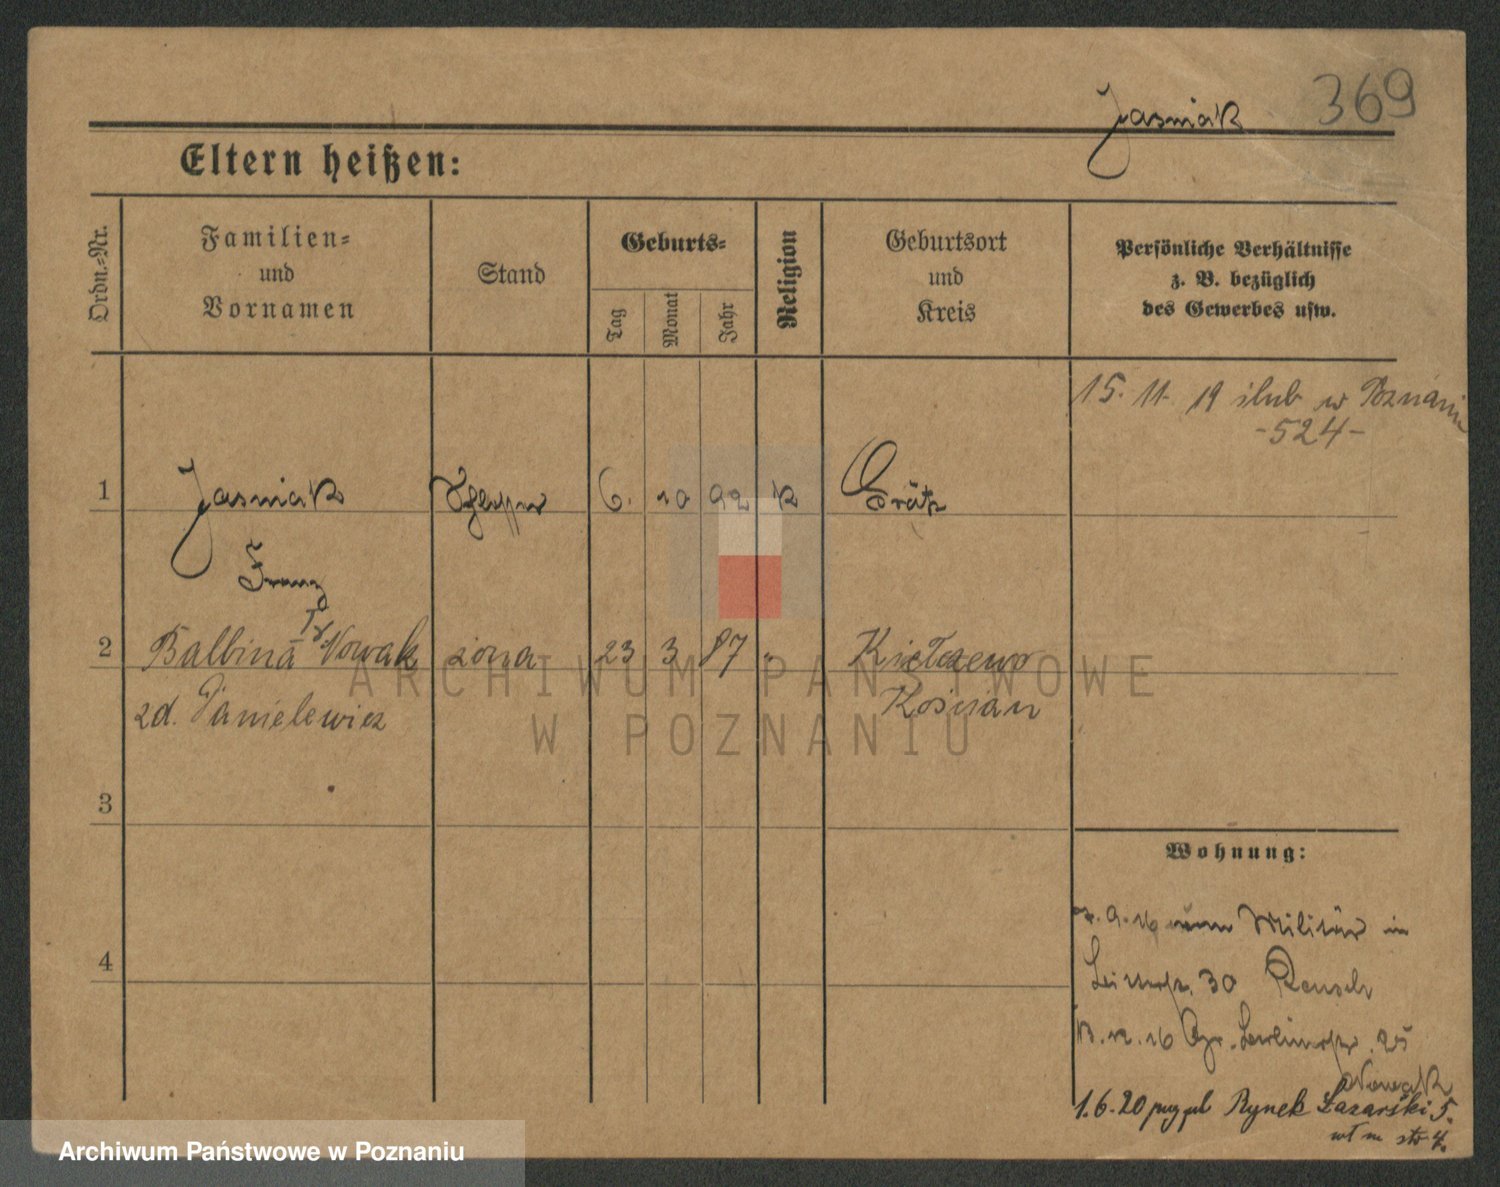 Jasniak 369
Eltern heißen:
Ordn.-Nr.
Familien-
und
Vornamen
Stand
Geburts-
Tag
Monat
Jahr
Religion
Geburtsort
und
Kreis
Persönliche Verhältnisse
z. B. bezüglich
des Gewerbes usw.
15. 11. 19 ślub w Poznaniu
-524-
1 Jasniak 6. 10 92 k Grätz
Franz
2 Balbina Nowak żona 23 3 87 " Kiełczewo
zd. Danielewicz Kościan
3
4
Wohnung:
9.16 vom Militär in
30
16 Gr. Berlinerstr. 25
Nowak
1.6.20 Rynek Łazarski 5.
ARCHIWUM PAŃSTWOWE
W POZNANIU
Archiwum Państwowe w Poznaniu